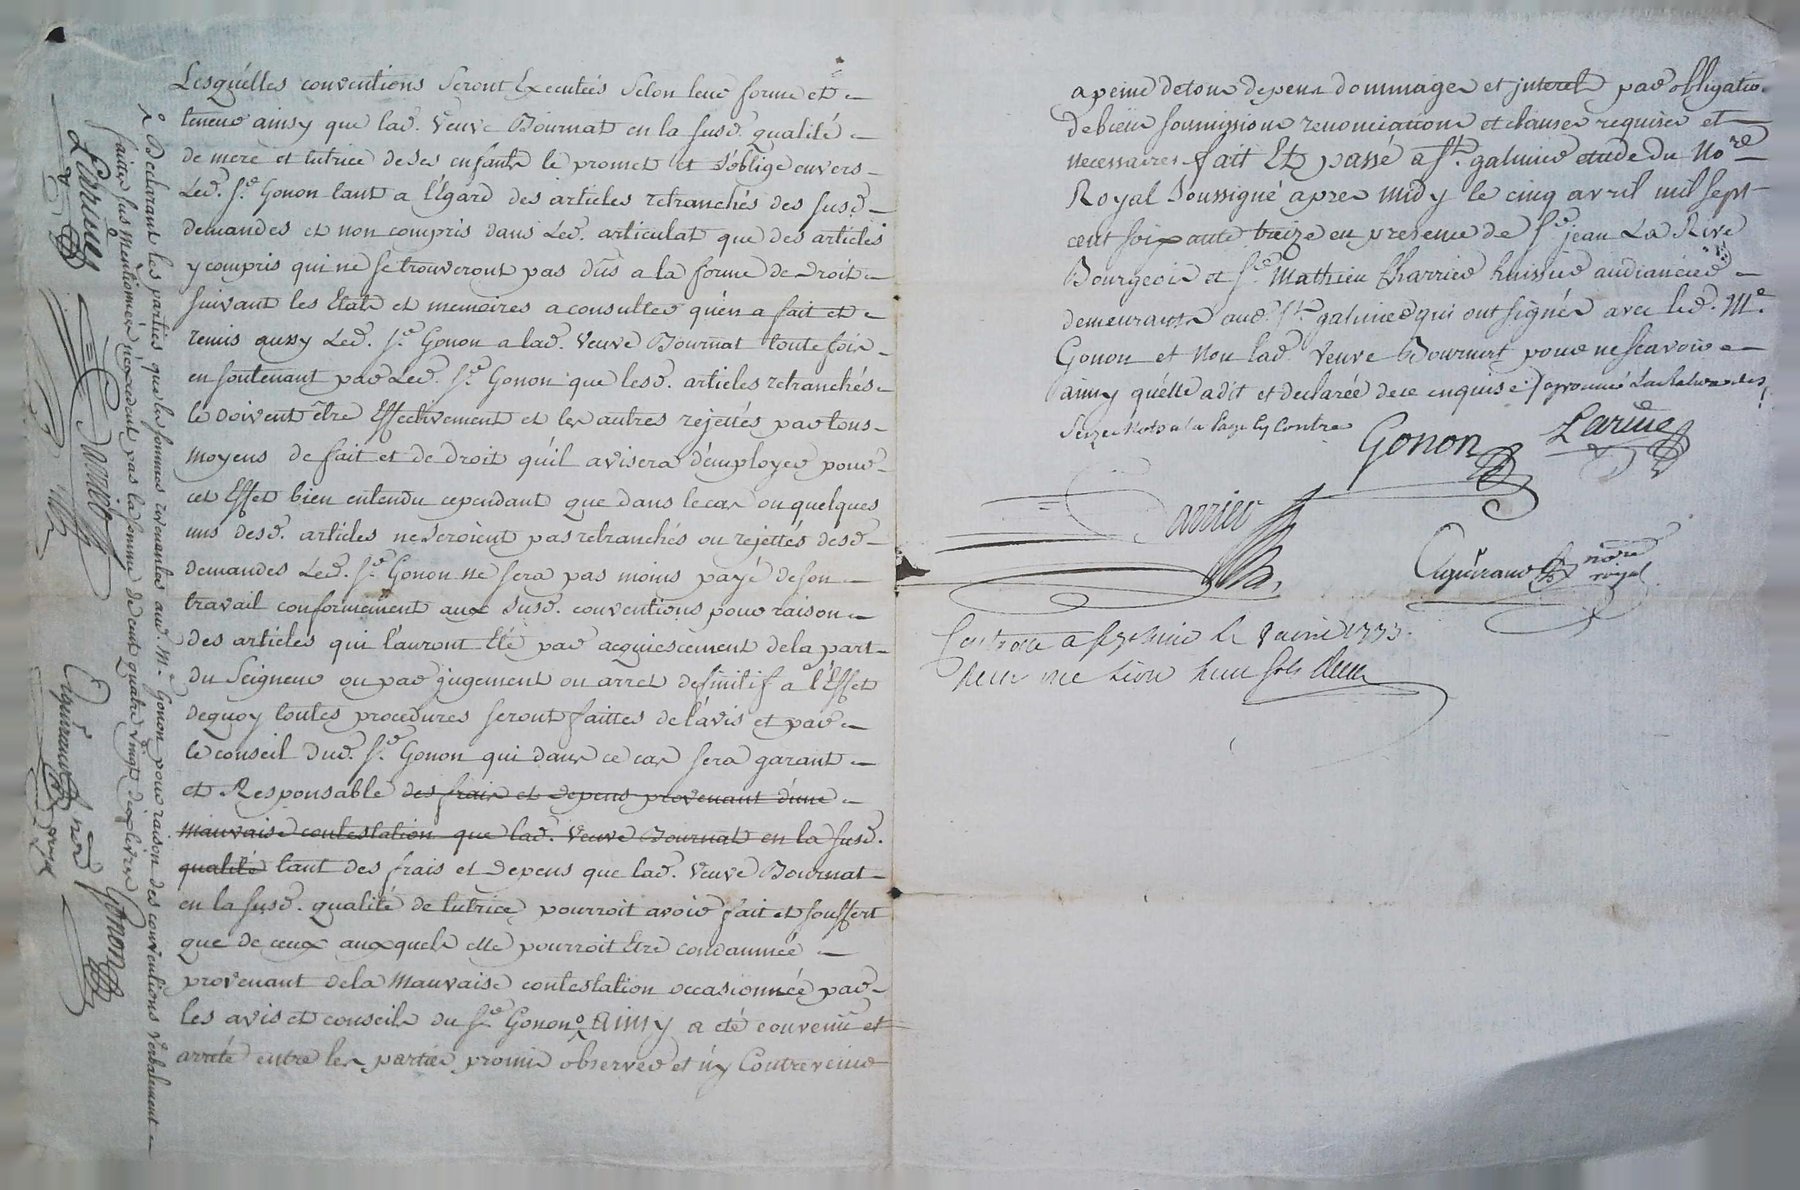 Lesquélles conventions seront Executées Selon leur forme et
teneur ainsy que lad. Veuve Bournat en la susd. qualité
de mere et tutrice de ses enfants le promet et s'oblige envers
Led. Sr. Gonon tant a l'égard des articles retranchés des susd.
demandes et non compris dans Led. articulat que des articles
y compris qui ne se trouveront pas dûs a la forme de Droit
suivant les Etats et memoires a consulter qu'en a fait et
remis aussy Led. Sr. Gonon a lad. Veuve Bournat toutefois
en soutenant par Led. Sr. Gonon que lesd. articles retranchés
le doivent être Effectivement et les autres rejettés par tous
moyens de fait et de droit qu'il avisera d'employer pour
cet Effet bien entendu cependant que dans le cas ou quelques
uns desd. articles ne seroient pas retranchés ou rejettés desd.
demandes Led. Sr. Gonon ne sera pas moins payé de son
travail conformement aux susd. conventions pour raison
des articles qui l'auront Eté par acquiescement de la part
du Seigneur ou par jugement ou arret definitif a l'Effet
dequoy toutes procedures seront faittes de l'avis et par
le conseil dud. Sr. Gonon qui dans ce cas sera garant
et Responsable des frais et depens provenant d'une
mauvaise contestation que lad. Veuve Bournat en la susd.
qualité tant des frais et depens que lad. Veuve Bournat
en la susd. qualité de tutrice pourroit avoir fait et souffert
que de ceux auxquels elle pourroit Etre condamnée
provenant de la mauvaise contestation occasionnée par
les avis et conseils du Sr. Gonon ainsy a eté convenu et
arreté entre les parties promis observer et n'y Contrevenir
Declarant les parties que les sommes revenantes aud. Me. Gonon pour raison des conventions verbalement
faittes sus mentionnées n'excedent pas la somme de cent quatre vingt dix livres
Larive
Gonon
a peine de tous depens dommages et interets par obligatio.
de biens soumissions renonciations et clauses requises et
necessaires fait Et passé a St. galmier etude du Nore.
Royal Soussigné apres midy le cinq avril mil sept
cent soixante treize en presence de Sr. jean La Rive
Bourgeois et Sr. Mathieu Charrier huissier audiancier
demeurants aud. St. galmier qui ont signés avec led. Me.
Gonon et Non lad. Veuve Bournat pour ne scavoir
ainsy qu'elle a dit et declarée de ce enquise
Seize mots a la page cy contre
Gonon Larive
Charrier
notre
royal
a St galmier le 8 avril 1773.